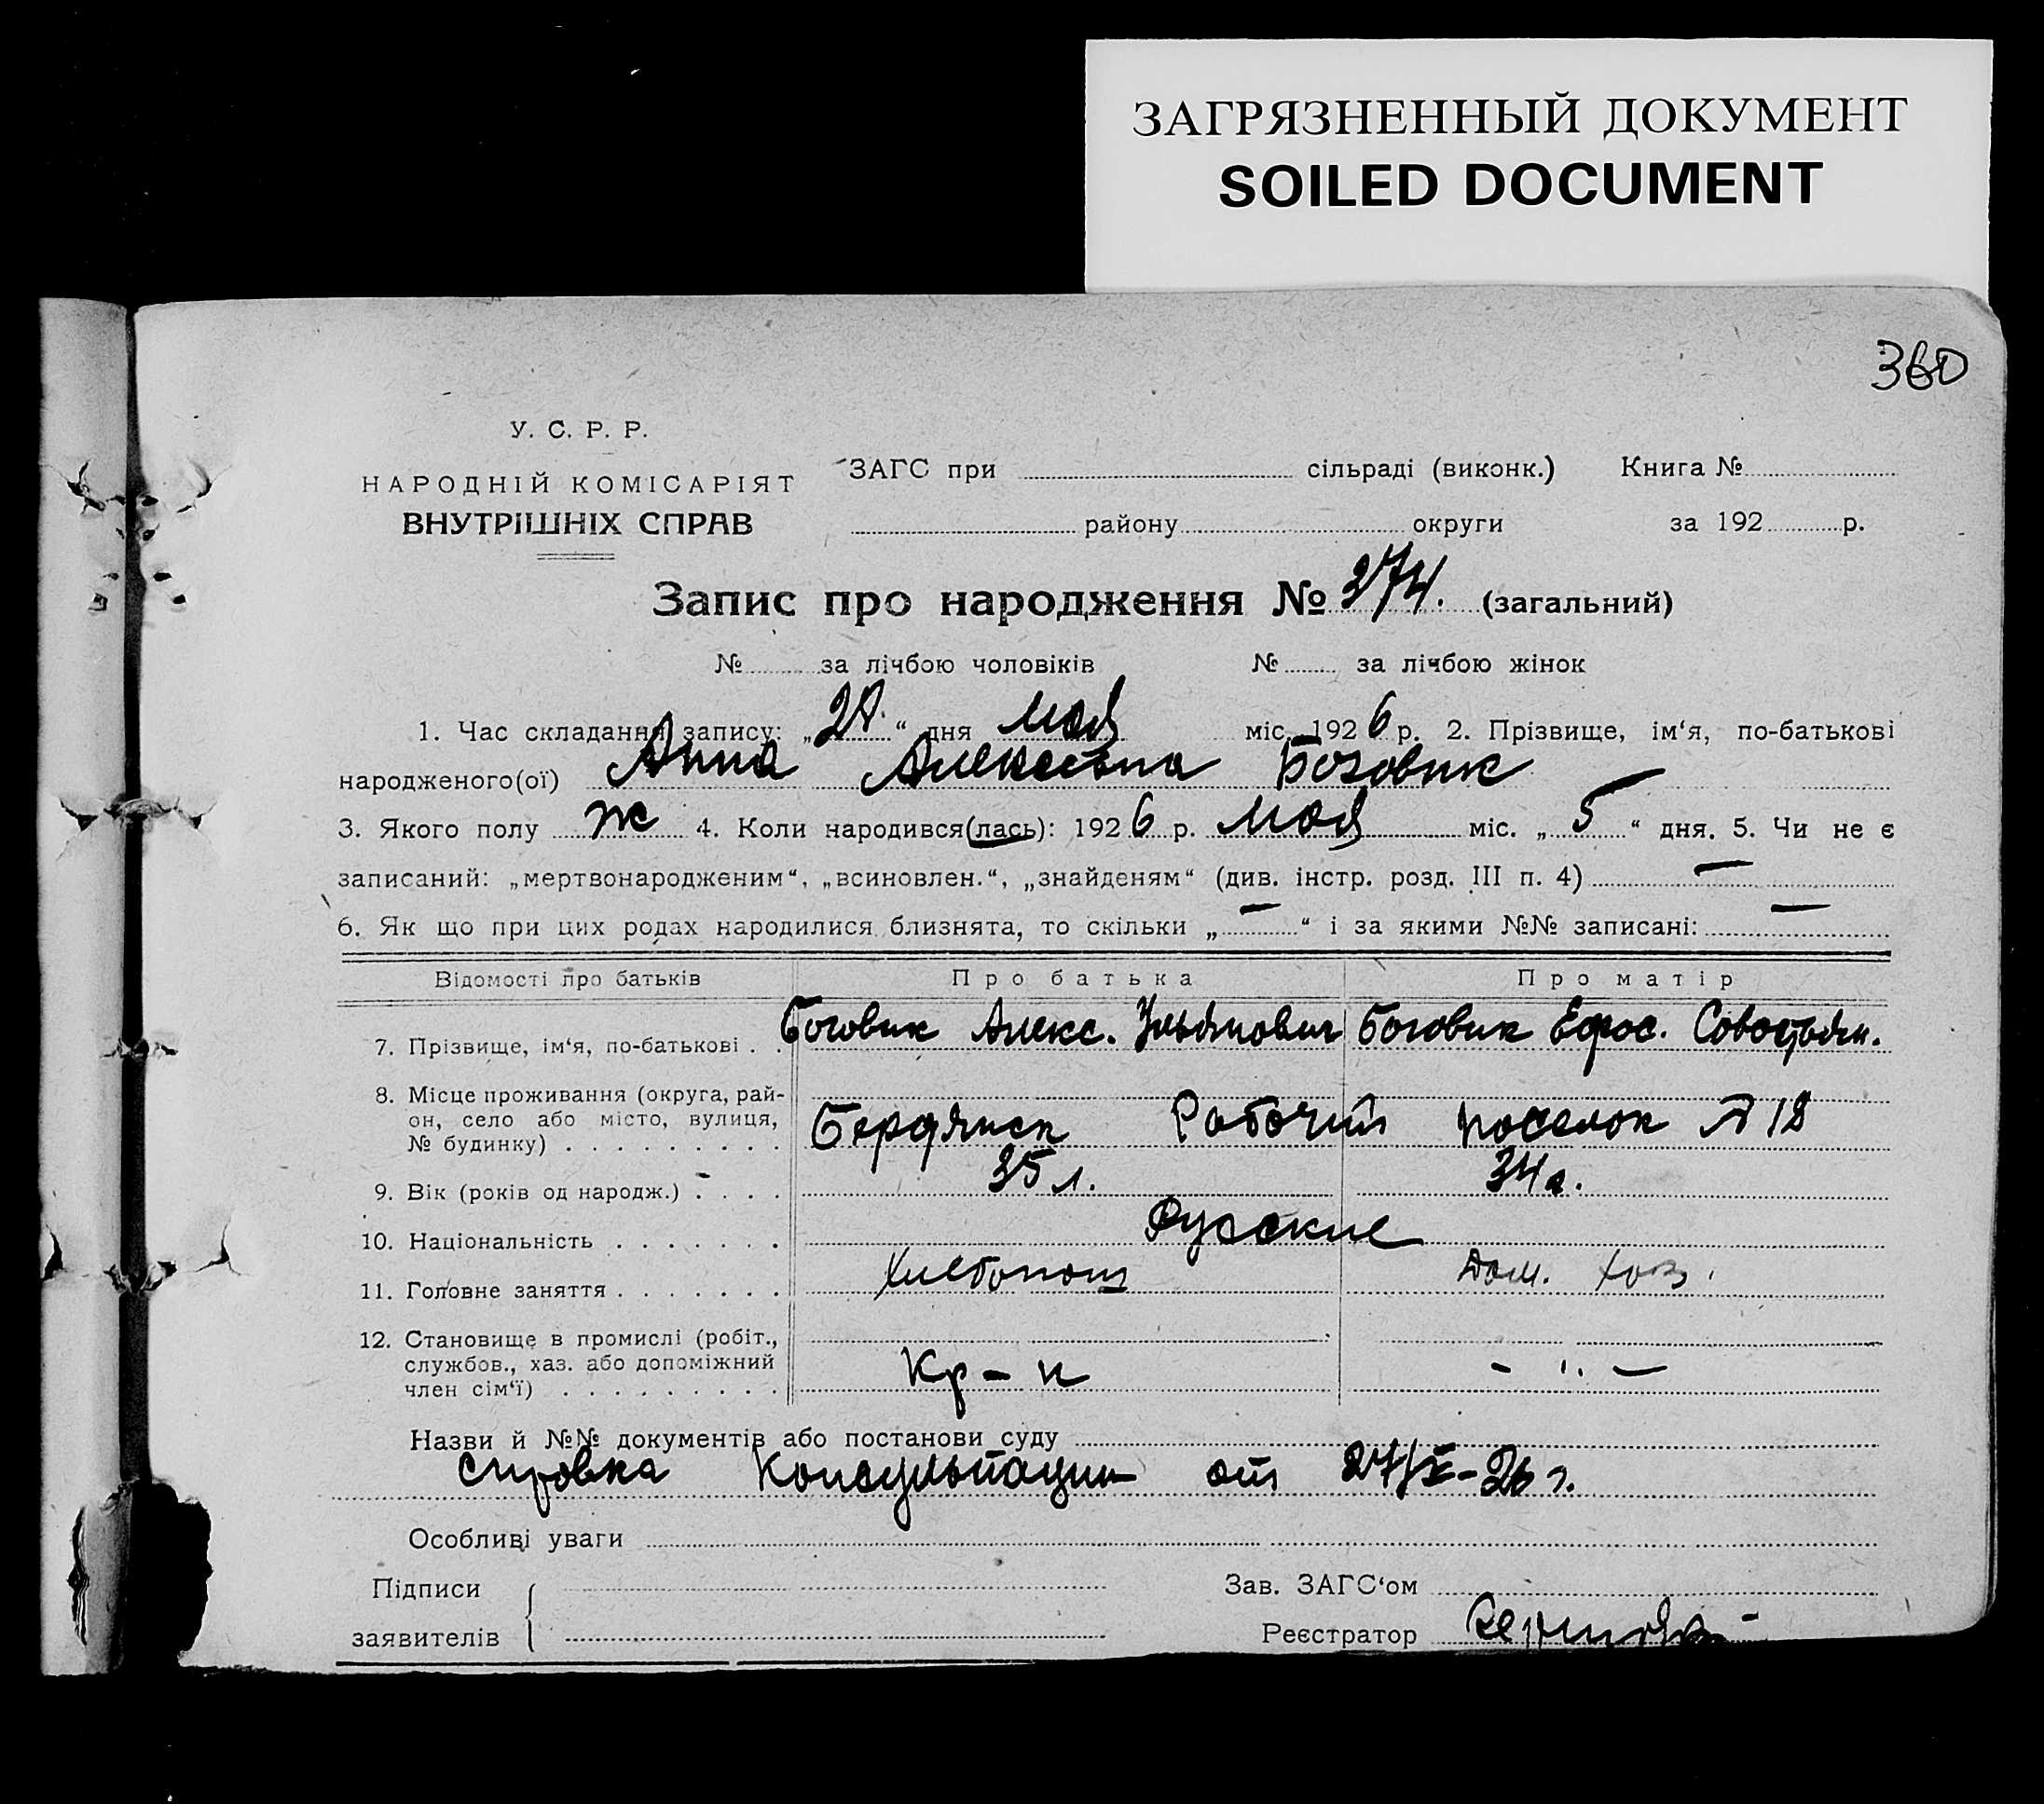 ЗАГРЯЗНЕННЫЙ ДОКУМЕНТ
SOILED DOCUMENT
360
У. С. Р. Р.
НАРОДНІЙ КОМІСАРІЯТ
ВНУТРІШНІХ СПРАВ
ЗАГС при сільраді (виконк.) Книга №
району округи за 192 р.
Запис про народження № 374. (загальний)
№ за лічбою чоловіків № за лічбою жінок
1. Час складання запису: „28“ дня мая міс. 1926 р. 2. Прізвище, ім‘я, по-батькові
народженого(ої) Анна Алексеевна Боговик
3. Якого полу ж 4. Коли народився(лась): 1926 р. мая міс. „5“ дня. 5. Чи не є
записаний: „мертвонародженим“, „всиновлен.“, „знайденям“ (див. інстр. розд. III п. 4) —
6. Як що при цих родах народилися близнята, то скільки „—“ і за якими №№ записані: —
Відомості про батьків Про батька Про матір
7. Прізвище, ім‘я, по-батькові . . Боговик Алекс. Ульянович Боговик Ефрос. Совостьян.
8. Місце проживання (округа, рай-
он, село або місто, вулиця,
№ будинку) . . . . . . . . . Бердянск Рабочий поселок № 18
9. Вік (років од народж.) . . . . 35 л. 34 г.
10. Національність . . . . . . . Русские
11. Головне заняття . . . . . . . Хлебопаш Дом. хоз.
12. Становище в промислі (робіт.,
службов., хаз. або допоміжний
член сім‘ї) . . . . . . . . . Кр-н - ,, -
Назви й №№ документів або постанови суду
справка Консультации от 27/V-26 г.
Особливі уваги
Підписи Зав. ЗАГС‘ом
заявителів Реєстратор